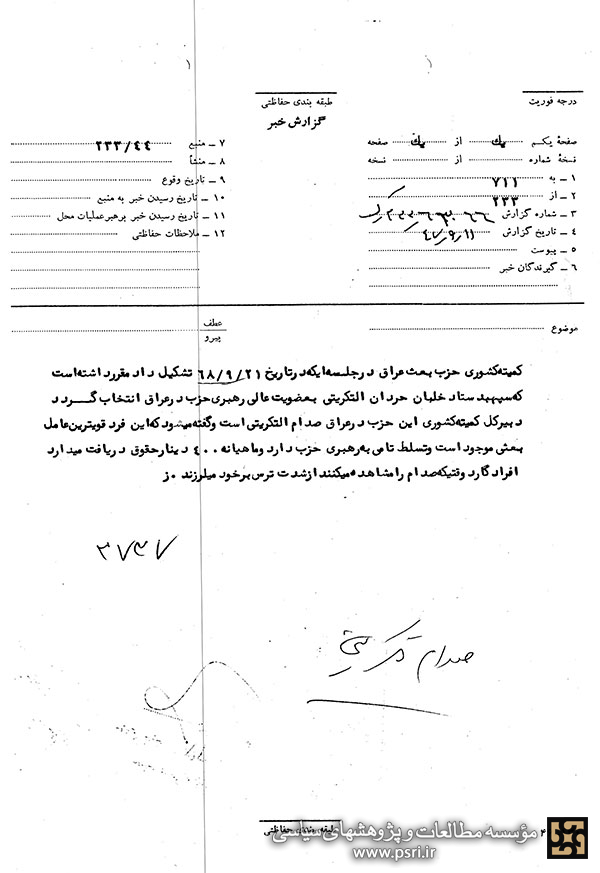 درجه فوریت
طبقه بندی حفاظتی
گزارش خبر
صفحهٔ یکم یک از یک صفحه
نسخهٔ شماره از نسخه
۱ ـ به ۷۱۱
۲ ـ از ۲۳۳
۳ ـ شماره گزارش
۴ ـ تاریخ گزارش ۴۷/۹/۱۱
۵ ـ پیوست
۶ ـ گیرندگان خبر
۷ ـ منبع ۲۳۳/۴۴
۸ ـ منشأ
۹ ـ تاریخ وقوع
۱۰ ـ تاریخ رسیدن خبر به منبع
۱۱ ـ تاریخ رسیدن خبر برهبر عملیات محل
۱۲ ـ ملاحظات حفاظتی
موضوع
عطف
پیرو
کمیته کشوری حزب بعث عراق در جلسه ایکه در تاریخ ۶۸/۹/۲۱ تشکیل داد مقرر داشته است
که سپهبد ستاد خلبان حردان التکریتی بعضویت عالی رهبری حزب در عراق انتخاب گردد
دبیر کل کمیته کشوری این حزب در عراق صدام التکریتی است و گفته میشود که این فرد قویترین عامل
بعثی موجود است و تسلط تامی به رهبری حزب دارد و ماهیانه ۴۰۰ دینار حقوق دریافت میدارد
افراد گارد وقتیکه صدام را مشاهده میکنند از شدت ترس برخود میلرزند ۰ ز
۳۷۴۷
صدام تکریتی
طبقه بندی حفاظتی
۴
مؤسسه مطالعات و پژوهشهای سیاسی
www.psri.ir